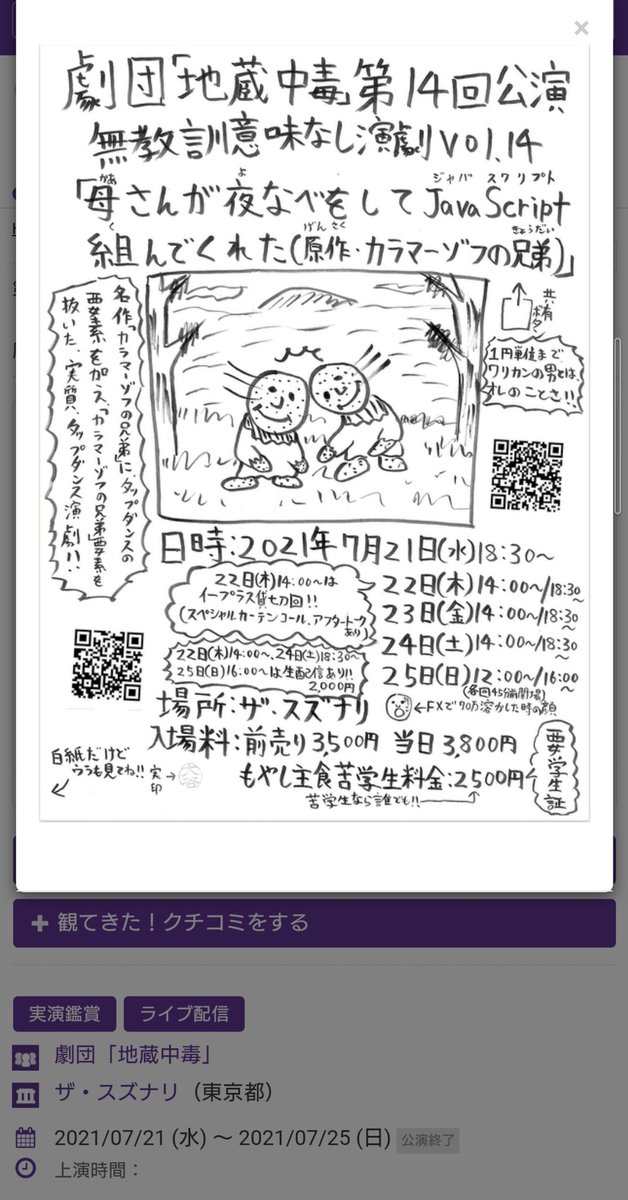 ×
劇団「地蔵中毒」第14回公演
無教訓意味なし演劇vol.14
「母さんが夜なべをしてJavaScript
かあ
よ
ジャバ スクリプト
組んでくれた(原作・カラマーゾフの兄弟)」
く
げんさく
きょうだい
名作「カラマーゾフの兄弟」にタップダンスの
要素を加え、「カラマーゾフの兄弟」要素を
抜いた、実質、タップダンス演劇!!
共有
ボタン
1円単位まで
ワリカンの男とは、
オレのことさ!!
日時:2021年7月21日(水)18:30~
22日(木)14:00~/18:30~
23日(金)14:00~/18:30~
24日(土)14:00~/18:30~
25日(日)12:00~/16:00~
(各回45分前開場)
22日(木)14:00~は
イープラス貸切回!!
(スペシャルカーテンコール、アフタートークあり)
22日(木)14:00~、24日(土)18:30~
25日(日)16:00~は生配信あり!!
2,000円
場所:ザ・スズナリ
←FXで70万溶かした時の顔
入場料:前売り3,500円 当日3,800円
もやし主食苦学生料金:2500円
苦学生なら誰でも!!
要学生証
白紙だけど
ウラも見てね!!
実印→
観てきた!クチコミをする
実演鑑賞
ライブ配信
劇団「地蔵中毒」
ザ・スズナリ（東京都）
2021/07/21 (水) ～ 2021/07/25 (日) 公演終了
上演時間：